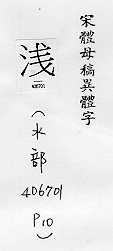 宋體母稿異體字
浅
(水部
406701
P10)